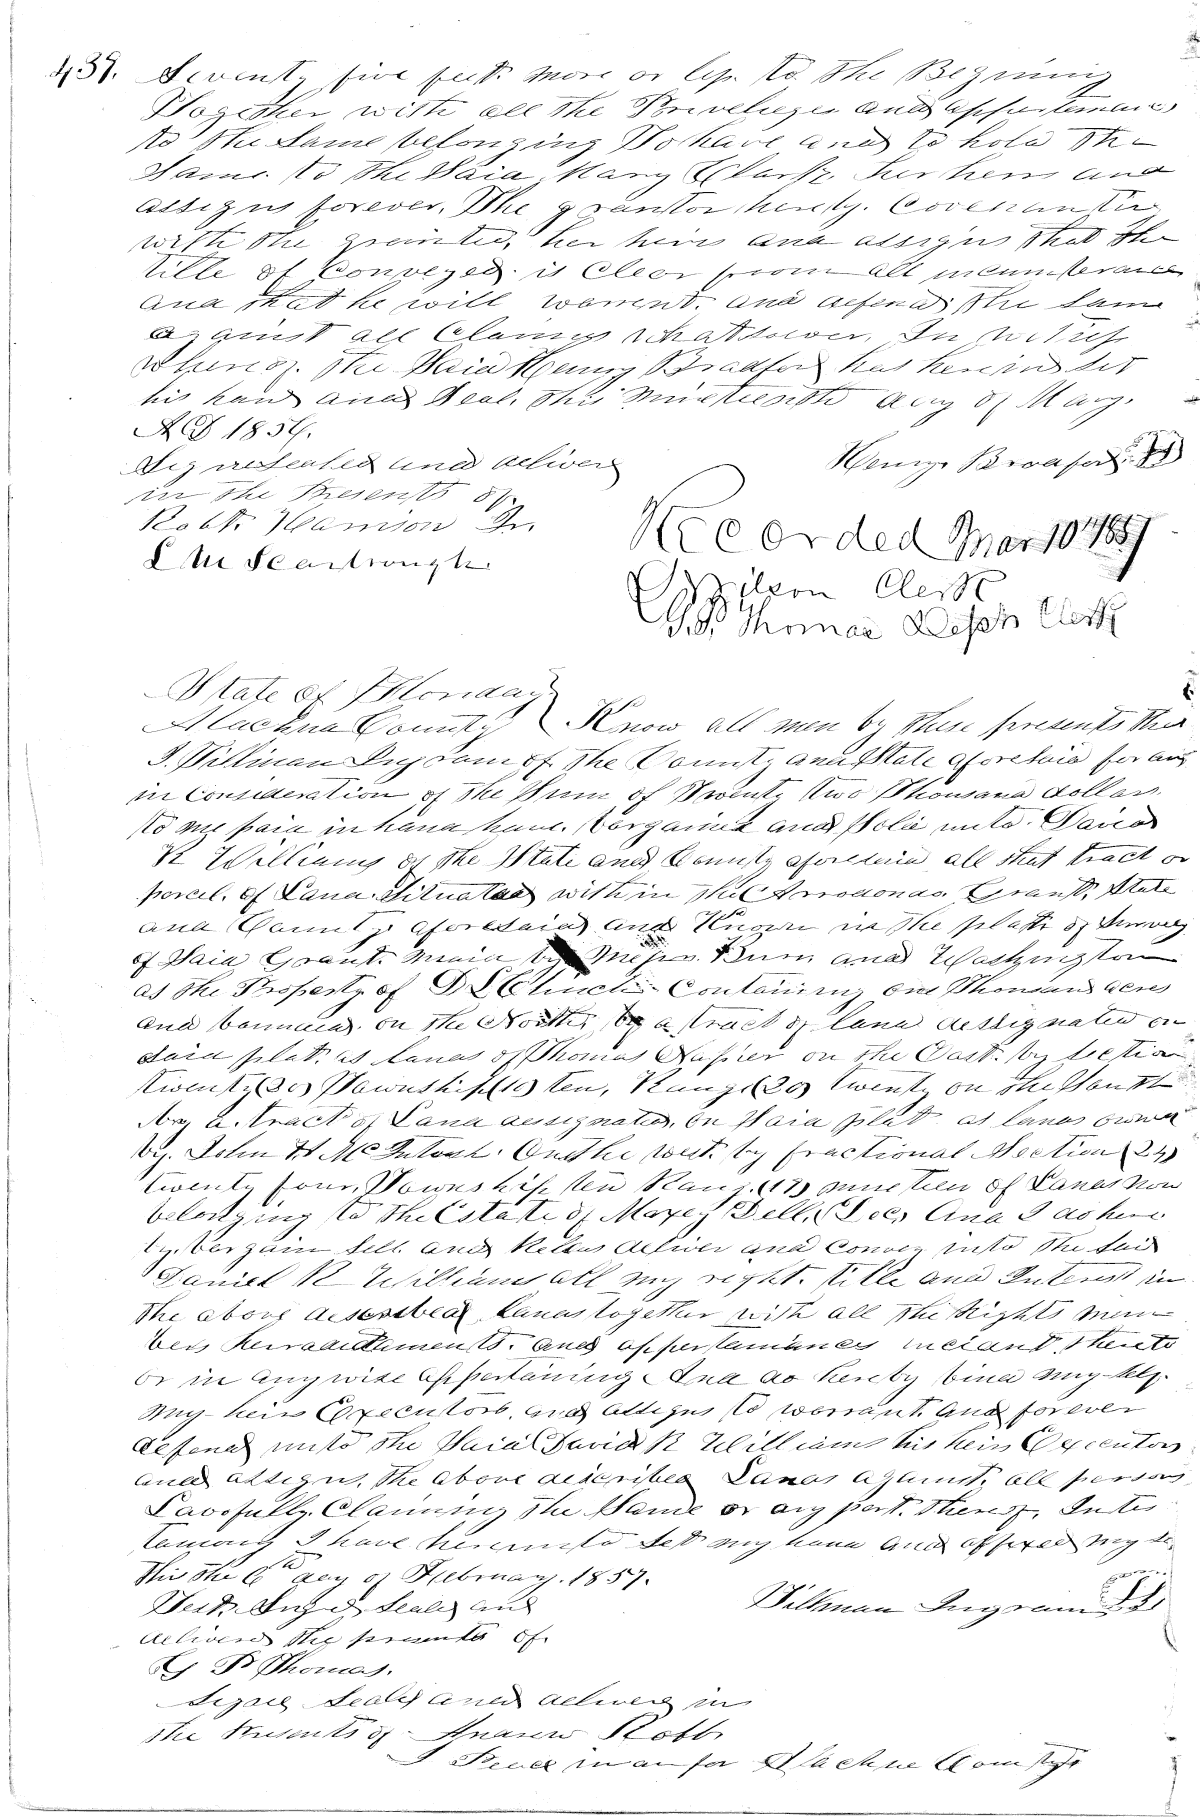 439. Seventy five feet more or less to the Begining
Together with all the Privelieges and appertenances
to the Same belonging To have and to hold the
Same to the Said Mary Clark her heirs and
assigns forever. The grantor hereby Covenanteth
with the grantee, her heirs and assigns that the
title of Conveyed is Clear from all incumberances
and that he will warrent and defend the Same
against all Claims whatsoever. In witness
whereof the Said Henry Bradford has hereunto set
his hand and Seal this Nineteenth day of May.
AD 185
Signed Sealed and deliverd
in the Presents of
Robt. Harrison Jr.
L M Scarbrough.
Henry Bradford
Recorded Mar 10th 1857
Wilson Clerk
G. P. Thomas Depty Clerk
State of Floriday
Alachua County Know all men by these presents that
I. Tillman Ingram of the County and State aforesaid for and
in Consideration of the Sum of Twenty two Thousand dollars
to me paid in hand have bargained and Sold unto David
R Williams of the State and County aforesaid all that tract or
parcel of Land Situated within the Arredondo Grant, State
and County aforesaid and Known in the plat of Survey
of Said Grant made by Messrs. Burr and Washington
as the Property of D L Clinch Containing one Thousand acres
and bounded on the North by a tract of land dessignated on
Said plat as lands of Thomas Napier on the East by Section
twenty (20) Township (10) ten, Range (20) twenty on the South
by a tract of Land dessignated on Said plat as lands owned
by John H McIntosh. On the west by fractional Section (24)
twenty four, Township ten Range (19) nineteen of Lands now
belonging to the Estate of Maxey Dell, Dec, And I do here
by bargain Sell and Release deliver and convey unto the Said
Daniel R Williams all my right, title and Interest in
the above described Lands together with all the Rights mem
bers herradittaments and appertainances incident thereto
or in any wise appertaining And do hereby bind my self
my heirs Executors, and assigns to warrant and forever
defend unto the Said David R Williams his heirs Executors
and assigns, the above described Lands against all persons
Lawfully Claiming the Same or any part thereof, In tes
tamony I have hereunto Set my hand and affixed my se
this the 6th day of Februrary. 1857.
Test. Signed Sealed and
delivered the presents of
G P Thomas.
Tillman Ingram
Signed Sealed and delivered in
the Presents of Andrew Robb
for Alachua County